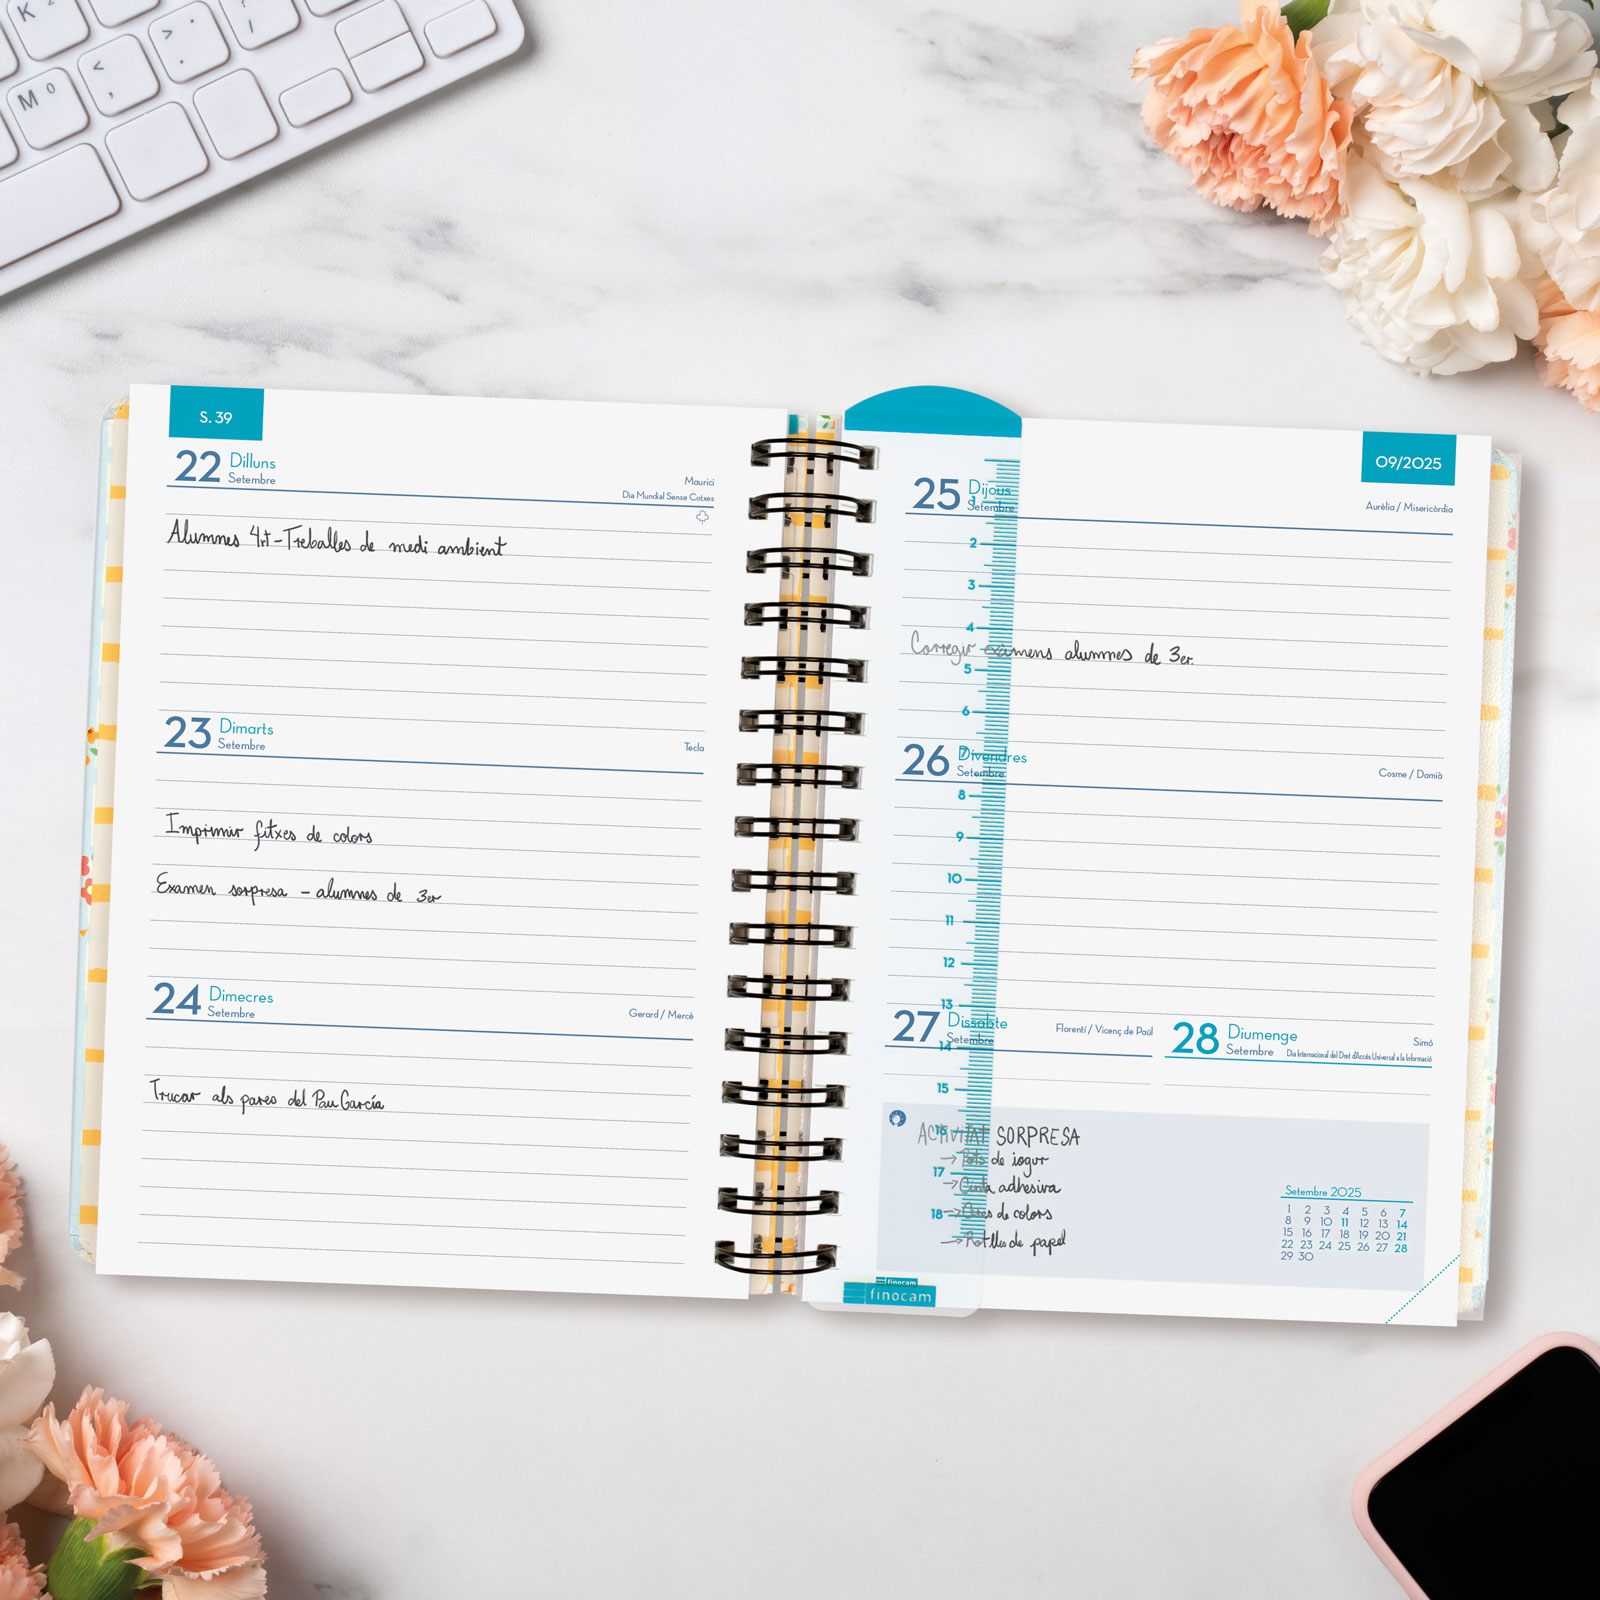 K 2
> .
? !
M 0
< ,
S. 39
22 Dilluns
Setembre
Maurici
Dia Mundial Sense Cotxes
Alumnes 4rt - Treballes de medi ambient
23 Dimarts
Setembre
Tecla
Imprimir fitxes de colors
Examen sorpresa - alumnes de 3er
24 Dimecres
Setembre
Gerard / Mercè
Trucar als pares del Pau García
09/2025
25 Dijous
Setembre
Aurèlia / Misericòrdia
Corregir exàmens alumnes de 3er.
26 Divendres
Setembre
Cosme / Damià
27 Dissabte
Setembre
Florentí / Vicenç de Paül
28 Diumenge
Setembre
Simó
Dia Internacional del Dret d'Accés Universal a la Informació
ACTIVITAT SORPRESA
→ Pots de iogur
→ Cinta adhesiva
→ de colors
→ Rotlles de papel
Setembre 2025
1 2 3 4 5 6 7
8 9 10 11 12 13 14
15 16 17 18 19 20 21
22 23 24 25 26 27 28
29 30
1
2
3
4
5
6
7
8
9
10
11
12
13
14
15
16
17
18
finocam
finocam